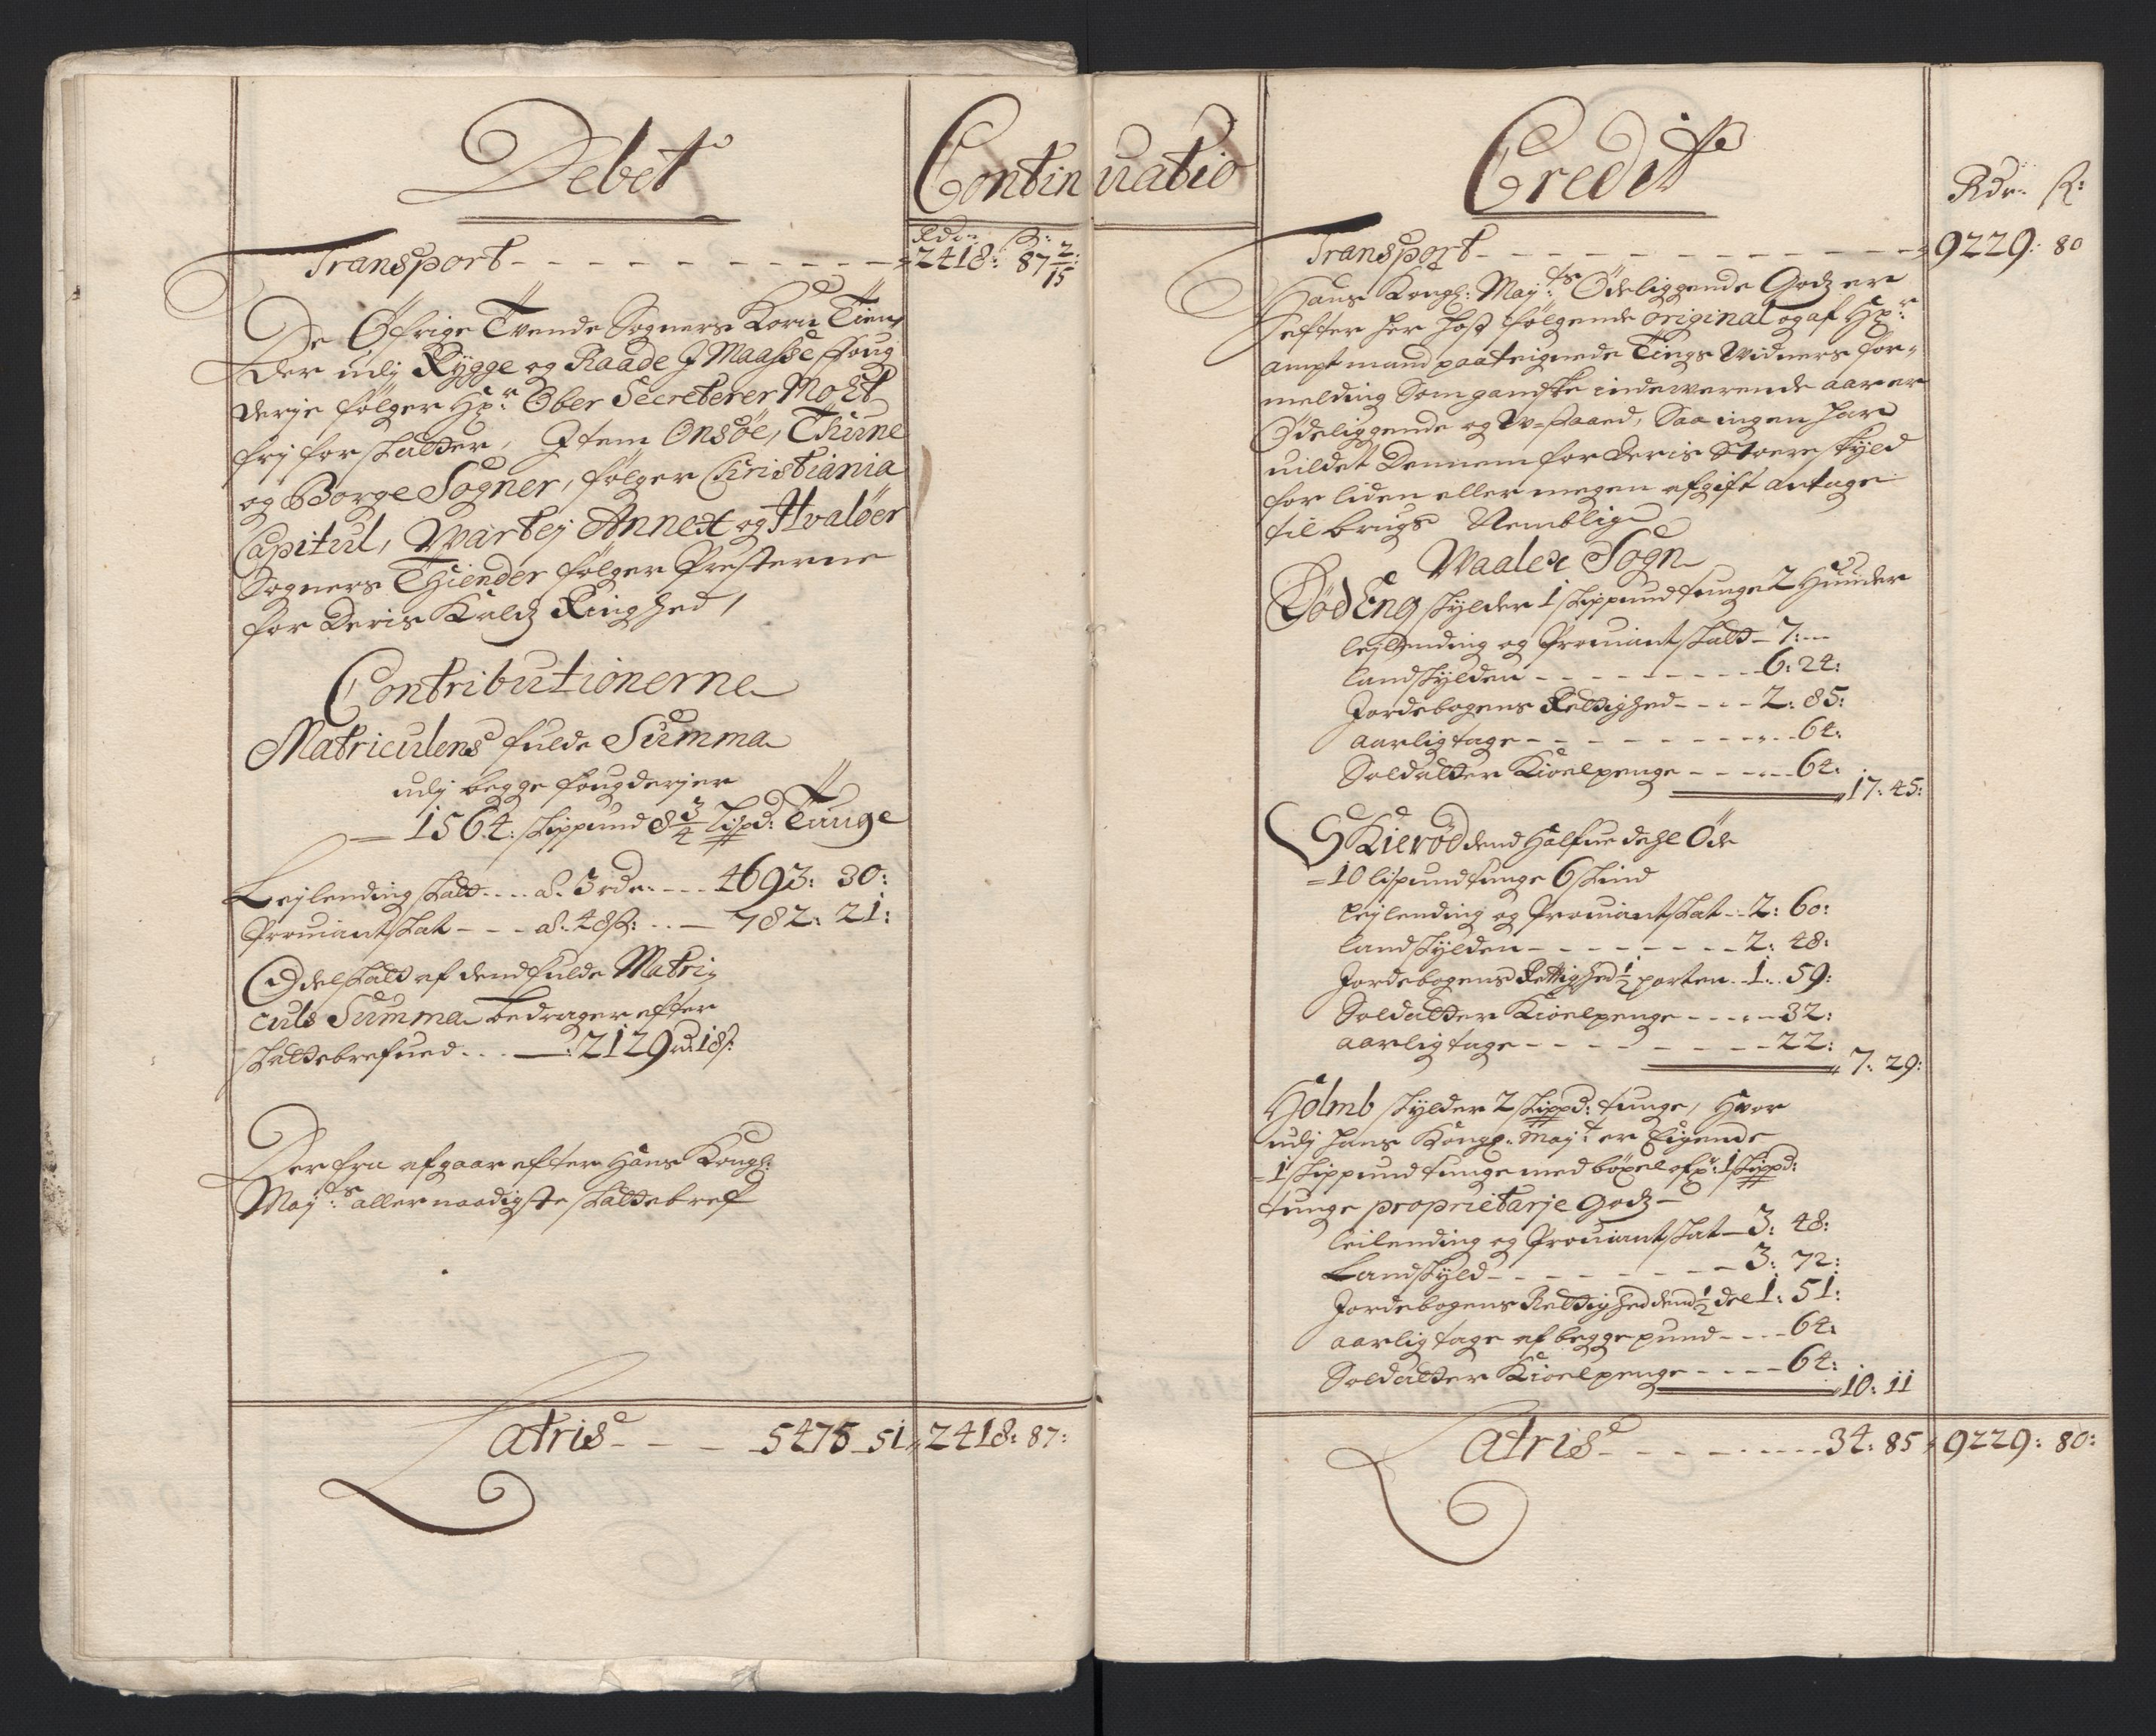 Debet
Continuatio
Rdr: ß:
Transport - - - - - - - - - - - 2418: 87 2/15
De Öfrige Tvende Sogners Korn Tien¸
der udj Rygge og Raade J Maasse Foug
derje følger Hr: Ober Secreterer Moht
frj for skatter, Jtem Onsöe, Thune
og Borge Sogner, følger Christiania
Capitul, Wartej Annext og Hvaløer
Sogners Thiender følger Presterne
for Deris Kalds Ringhed,
Contributionerne
Matriculens fulde Summa
udj begge fougderjer
1564: skippund 8 3/4 Lispd: Tunge
Lejlending skatt .... a. 3 rdr. --- 4693: 30:
Proviantskat - - - a. 48 ß: - - 782: 21:
Odelskatt af dend fulde Matri¸
culs Summa bedrager efter
skattebrefued . . . 2129 rd: 18 ß:
Der fra afgaar efter Hans Kongl:
Majts: allernaadigste skattebref
Latris - - - 5475 51 2418: 87:
Credit
Rdr: ß:
Transport - - - - - - - - - - - 9229: 80
Hans Kongl: Majts: Ödeliggende Godz er
efter her hosføljende original og af Hr:
amptmand paateignede Tings Widners for¸
melding Som gandske indeværende aar er
Ödeliggende og U=saaed, Saa ingen har
vildet Dennem for Deris Store skyld
for liden eller megen afgift antage
til brugs Nemblig
Waaler Sogn
Röd Eng skylder 1 skippund tunge 2 Huuder
lejlending og Proviant skatt - 7: --
landskylden - - - - - - - - 6: 24:
Jordebogens Rettighed - - - - 2: 85:
aarlig tage - - - - - - - - 64:
Soldatter Kioelpenge - - - - 64:
17: 45:
Skieröd dend Halfue dehl Öde
=10 lispund tunge 6 skind
Lejlending og Proviantskat - 2: 60:
landskylden - - - - - - - - 2: 48:
Jordebogens Rettighed 1/2 parten - 1: 59:
Soldatter Kioelpenge - - - - 32:
aarlig tage - - - - - - - - 22:
7: 29:
Holmb skylder 2 skippd: tunge, Hvor
udj hans Kongl: Mayt: er Eigende
=1 skippund tunge med böxel af pr: 1 skippd:
tunge proprietarje Godz -
leilending og Proviantskat - 3: 48:
Landskyld - - - - - - - - 3: 72:
Jordebogens Rettighed dend 1/2 del 1: 51:
aarlig tage af begge pund - - - - 64:
Soldatter Kioelpenge - - - - 64:
10: 11
Latris - - - - - - - - 34: 85 9229: 80: